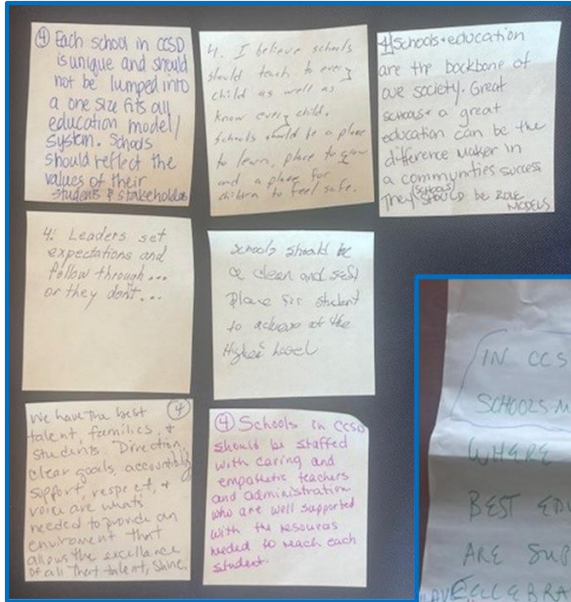 ④ Each school in CCSD
is unique and should
not be lumped into
a one size fits all
education model/
system. Schools
should reflect the
values of their
students & stakeholders
4. I believe schools
should teach to every
child as well as
know every child.
Schools should be a place
to learn, place to grow
and a place for
children to feel safe.
4) Schools & education
are the backbone of
our society. Great
schools & a great
education can be the
difference maker in
a communities success
They (schools) should be ROLE
MODELS
4. Leaders set
expectations and
follow through...
or they don't...
Schools should be
a clean and safe
place for student
to achieve at the
Highest Level
We have the best ④
talent, families, &
students. Direction,
clear goals, accountability
support, respect, &
voice are whats
needed to provide an
enviroment that
allows the excellence
of all that talent, shine.
④ Schools in CCSD
should be staffed
with caring and
empathetic teachers
and administration
who are well supported
with the resources
needed to reach each
student.
IN CCS
SCHOOLS
WHERE
BEST EDU
ARE SUP